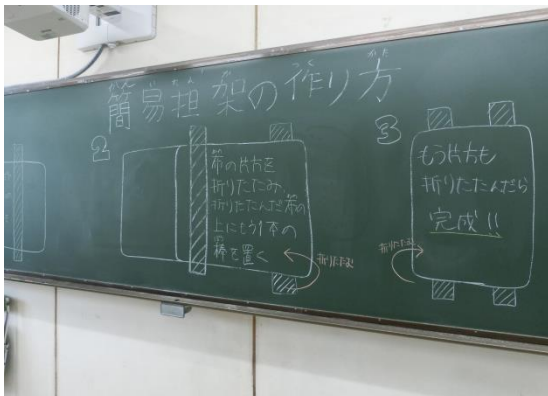 簡易担架の作り方
2
布の片方を
折りたたみ、
折りたたんだ布の
上にもう1本の
棒を置く
折りたたむ
3
もう片方も
折りたたんだら
完成!!
折りたたむ